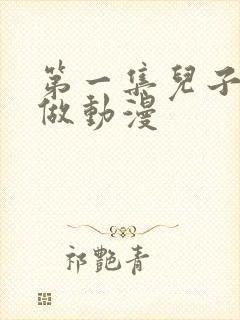 第一集兒子
做動漫
祁艷青